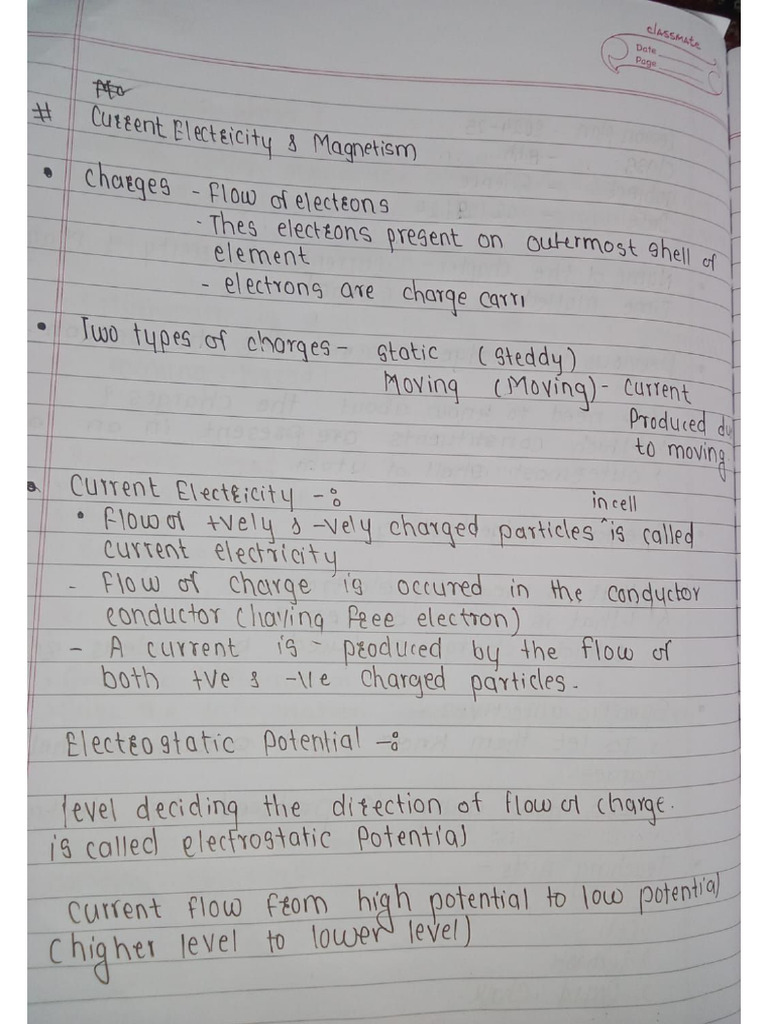 classmate
Date
Page
# Current Electricity & Magnetism
• Charges - Flow of electrons
- Thes electrons present on outermost shell of
element
- electrons are charge carri
• Two types of charges - static (steddy)
Moving (Moving) - current
Produced du
to moving
• Current Electricity -:
in cell
• Flow of +vely & -vely charged particles ^ is called
current electricity
- Flow of charge is occured in the conductor
conductor (having free electron)
- A current is - produced by the flow of
both +ve & -ve charged particles.
Electrostatic Potential -:
level deciding the direction of flow of charge.
is called electrostatic Potential
Current flow from high potential to low potential
(higher level to lower level)